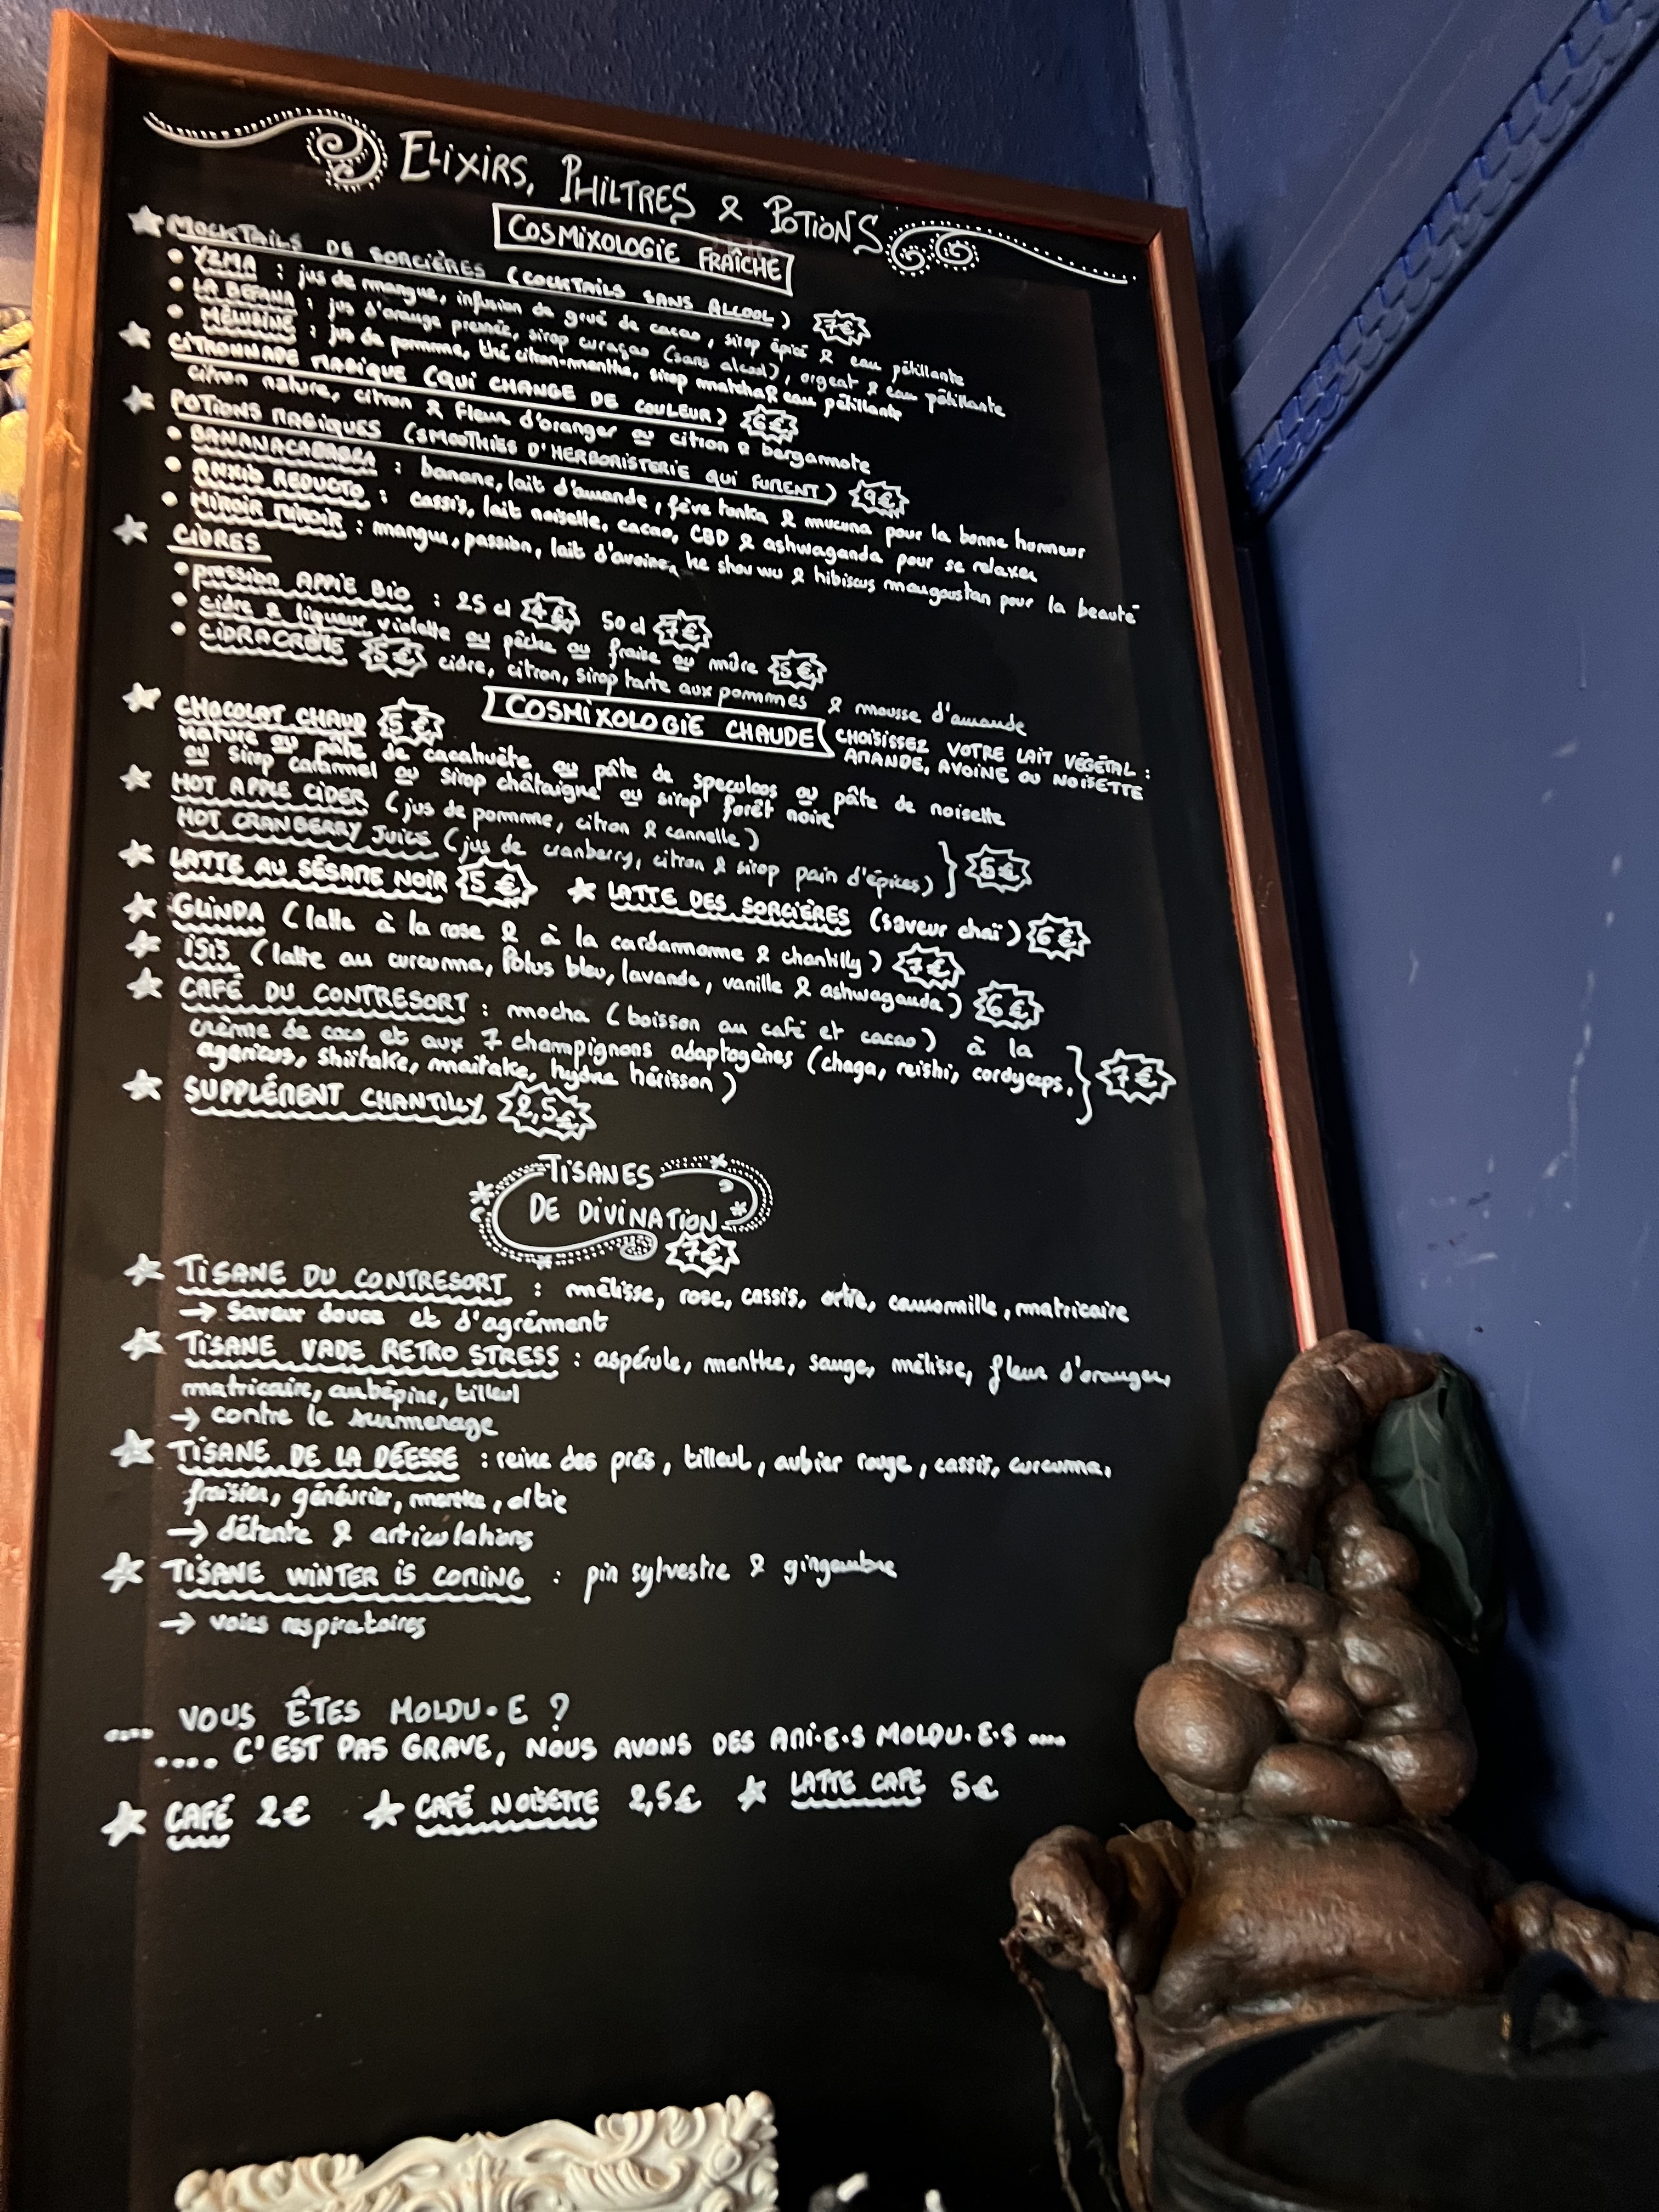 ELIXIRS, PHILTRES & POTIONS
COSMIXOLOGIE FRAÎCHE
MOCKTAILS DE SORCIÈRES (COCKTAILS SANS ALCOOL) 7€
YZMA : jus de mangue, infusion de grué de cacao, sirop épicé & eau pétillante
LA BEFANA : jus d'orange pressée, sirop curaçao (sans alcool), orgeat & eau pétillante
MÉLUSINE : jus de pomme, thé citron-menthe, sirop matcha & eau pétillante
CITRONNADE MAGIQUE (QUI CHANGE DE COULEUR) 6€
citron nature, citron & fleur d'oranger ou citron & bergamote
POTIONS MAGIQUES (SMOOTHIES D'HERBORISTERIE QUI FUMENT) 9€
BANANACADABRA : banane, lait d'amande, fève tonka & mucuna pour la bonne humeur
ANXIO REDUCTO : cassis, lait noisette, cacao, CBD & ashwaganda pour se relaxer
MIROIR MIROIR : mangue, passion, lait d'avoine, he shou wu & hibiscus mangoustan pour la beauté
CIDRES
pression APPIE BIO : 25 cl 4€ 50 cl 7€
cidre & liqueur violette ou pêche ou fraise ou mûre 5€
CIDRACRÈME 5€ cidre, citron, sirop tarte aux pommes & mousse d'amande
COSMIXOLOGIE CHAUDE
CHOISISSEZ VOTRE LAIT VÉGÉTAL :
AMANDE, AVOINE OU NOISETTE
CHOCOLAT CHAUD 5€
nature ou pâte de cacahuète ou pâte de speculoos ou pâte de noisette
ou sirop caramel ou sirop châtaigne ou sirop forêt noire
HOT APPLE CIDER (jus de pomme, citron & cannelle)
HOT CRANBERRY JUICE (jus de cranberry, citron & sirop pain d'épices) 5€
LATTE AU SÉSAME NOIR 5€ LATTE DES SORCIÈRES (saveur chaï) 6€
GLINDA (latte à la rose & à la cardamome & chantilly) 7€
ISIS (latte au curcuma, lotus bleu, lavande, vanille & ashwaganda) 6€
CAFÉ DU CONTRESORT : mocha (boisson au café et cacao) à la
crème de coco et aux 7 champignons adaptogènes (chaga, reishi, cordyceps,
agaricus, shiitake, maitake, hydne hérisson) 7€
SUPPLÉMENT CHANTILLY 2,5€
TISANES
DE DIVINATION
7€
TISANE DU CONTRESORT : mélisse, rose, cassis, ortie, camomille, matricaire
→ saveur douce et d'agrément
TISANE VADE RETRO STRESS : aspérule, menthe, sauge, mélisse, fleur d'oranger,
matricaire, aubépine, tilleul
→ contre le surmenage
TISANE DE LA DÉESSE : reine des prés, tilleul, aubier rouge, cassis, curcuma,
fraisier, génévrier, menthe, ortie
→ détente & articulations
TISANE WINTER IS COMING : pin sylvestre & gingembre
→ voies respiratoires
.... VOUS ÊTES MOLDU·E ?
.... C'EST PAS GRAVE, NOUS AVONS DES AMI·E·S MOLDU·E·S ....
CAFÉ 2€ CAFÉ NOISETTE 2,5€ LATTE CAFÉ 5€